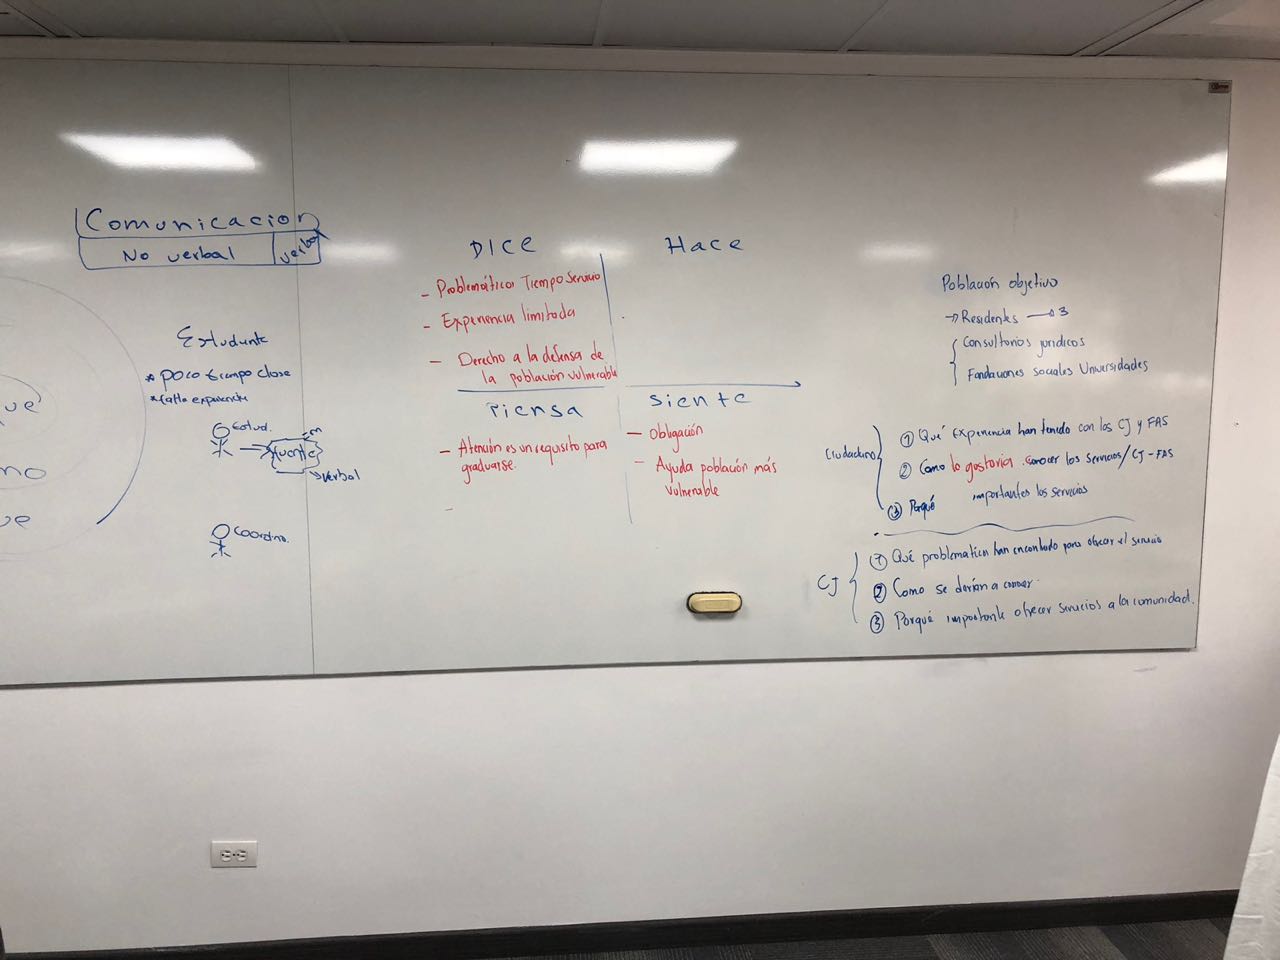 Comunicacion
No verbal
verbal
Estudiante
* poco tiempo clase
* falta experiencia
Estud.
Fuente
→ verbal
Coordino.
ue
no
ue
DICE
- Problemática Tiempo Servicio
- Experiencia limitada
- Derecho a la defensa de
la población vulnerable
Hace
Piensa
- Atención es un requisito para
graduarse.
-
Siente
- Obligación
- Ayuda población más
vulnerable
Población objetivo
→ Residentes → 3
Consultorios jurídicos
Fundaciones sociales Universidades
Ciudadano
① Qué Experiencia han tenido con los CJ y FAS
② Como lo gustaria conocer los servicios/CJ-FAS
③ Porqué importantes los servicios
CJ
① Qué problematica han encontrado para ofrecer el servicio
② Como se darían a conocer.
③ Porqué importante ofrecer servicios a la comunidad.